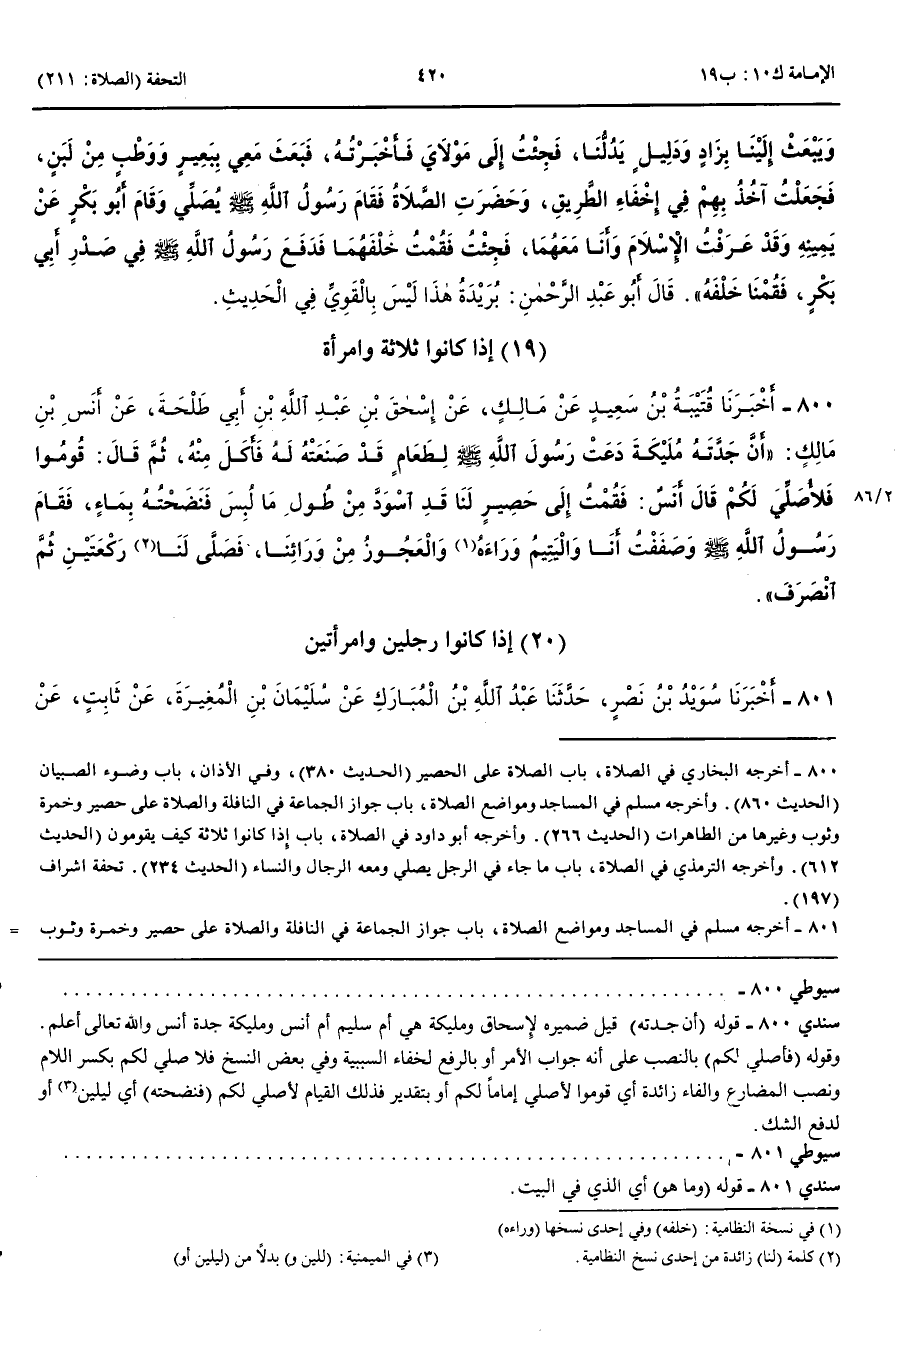 الإمامة ك١٠: ب١٩
٤٢٠
التحفة (الصلاة: ٢١١)
وَيَبْعَثْ إِلَيْنَا بِزَادٍ وَدَلِيلٍ يَدُلُّنَا، فَجِئْتُ إِلَى مَوْلَايَ فَأَخْبَرْتُهُ، فَبَعَثَ مَعِي بِبَعِيرٍ وَوَطْبٍ مِنْ لَبَنٍ،
فَجَعَلْتُ آخُذُ بِهِمْ فِي إِخْفَاءِ الطَّرِيقِ، وَحَضَرَتِ الصَّلَاةُ فَقَامَ رَسُولُ اللَّهِ ﷺ يُصَلِّي وَقَامَ أَبُو بَكْرٍ عَنْ
يَمِينِهِ وَقَدْ عَرَفْتُ الْإِسْلَامَ وَأَنَا مَعَهُمَا، فَجِئْتُ فَقُمْتُ خَلْفَهُمَا فَدَفَعَ رَسُولُ اللَّهِ ﷺ فِي صَدْرِ أَبِي
بَكْرٍ، فَقُمْنَا خَلْفَهُ». قَالَ أَبُو عَبْدِ الرَّحْمٰنِ: بُرَيْدَةُ هٰذَا لَيْسَ بِالْقَوِيِّ فِي الْحَدِيثِ.
(١٩) إذا كانوا ثلاثة وامرأة
٨٠٠ - أَخْبَرَنَا قُتَيْبَةُ بْنُ سَعِيدٍ عَنْ مَالِكٍ، عَنْ إِسْحٰقَ بْنِ عَبْدِ اللَّهِ بْنِ أَبِي طَلْحَةَ، عَنْ أَنَسِ بْنِ
مَالِكٍ: «أَنَّ جَدَّتَهُ مُلَيْكَةَ دَعَتْ رَسُولَ اللَّهِ ﷺ لِطَعَامٍ قَدْ صَنَعَتْهُ لَهُ فَأَكَلَ مِنْهُ، ثُمَّ قَالَ: قُومُوا
فَلِأُصَلِّيَ لَكُمْ قَالَ أَنَسٌ: فَقُمْتُ إِلَى حَصِيرٍ لَنَا قَدِ اسْوَدَّ مِنْ طُولِ مَا لُبِسَ فَنَضَحْتُهُ بِمَاءٍ، فَقَامَ
٨٦/٢
رَسُولُ اللَّهِ ﷺ وَصَفَفْتُ أَنَا وَالْيَتِيمُ وَرَاءَهُ(١) وَالْعَجُوزُ مِنْ وَرَائِنَا، فَصَلَّى لَنَا(٢) رَكْعَتَيْنِ ثُمَّ
انْصَرَفَ».
(٢٠) إذا كانوا رجلين وامرأتين
٨٠١ - أَخْبَرَنَا سُوَيْدُ بْنُ نَصْرٍ، حَدَّثَنَا عَبْدُ اللَّهِ بْنُ الْمُبَارَكِ عَنْ سُلَيْمَانَ بْنِ الْمُغِيرَةِ، عَنْ ثَابِتٍ، عَنْ
٨٠٠ - أخرجه البخاري في الصلاة، باب الصلاة على الحصير (الحديث ٣٨٠)، وفي الأذان، باب وضوء الصبيان
(الحديث ٨٦٠). وأخرجه مسلم في المساجد ومواضع الصلاة، باب جواز الجماعة في النافلة والصلاة على حصير وخمرة
وثوب وغيرها من الطاهرات (الحديث ٢٦٦). وأخرجه أبو داود في الصلاة، باب إذا كانوا ثلاثة كيف يقومون (الحديث
٦١٢). وأخرجه الترمذي في الصلاة، باب ما جاء في الرجل يصلي ومعه الرجال والنساء (الحديث ٢٣٤). تحفة اشراف
(١٩٧).
٨٠١ - أخرجه مسلم في المساجد ومواضع الصلاة، باب جواز الجماعة في النافلة والصلاة على حصير وخمرة وثوب =
سيوطي ٨٠٠ - ................................................
سندي ٨٠٠ - قوله (أن جدته) قيل ضميره لإسحاق ومليكة هي أم سليم أم أنس ومليكة جدة أنس والله تعالى أعلم.
وقوله (فأصلي لكم) بالنصب على أنه جواب الأمر أو بالرفع لخفاء السببية وفي بعض النسخ فلا صلي لكم بكسر اللام
ونصب المضارع والفاء زائدة أي قوموا لأصلي إماماً لكم أو بتقدير فذلك القيام لأصلي لكم (فنضحته) أي ليلين(٣) أو
لدفع الشك.
سيوطي ٨٠١ - ................................................
سندي ٨٠١ - قوله (وما هو) أي الذي في البيت.
(١) في نسخة النظامية: (خلفه) وفي إحدى نسخها (وراءه)
(٢) كلمة (لنا) زائدة من إحدى نسخ النظامية.
(٣) في الميمنية: (للين و) بدلاً من (ليلين أو)